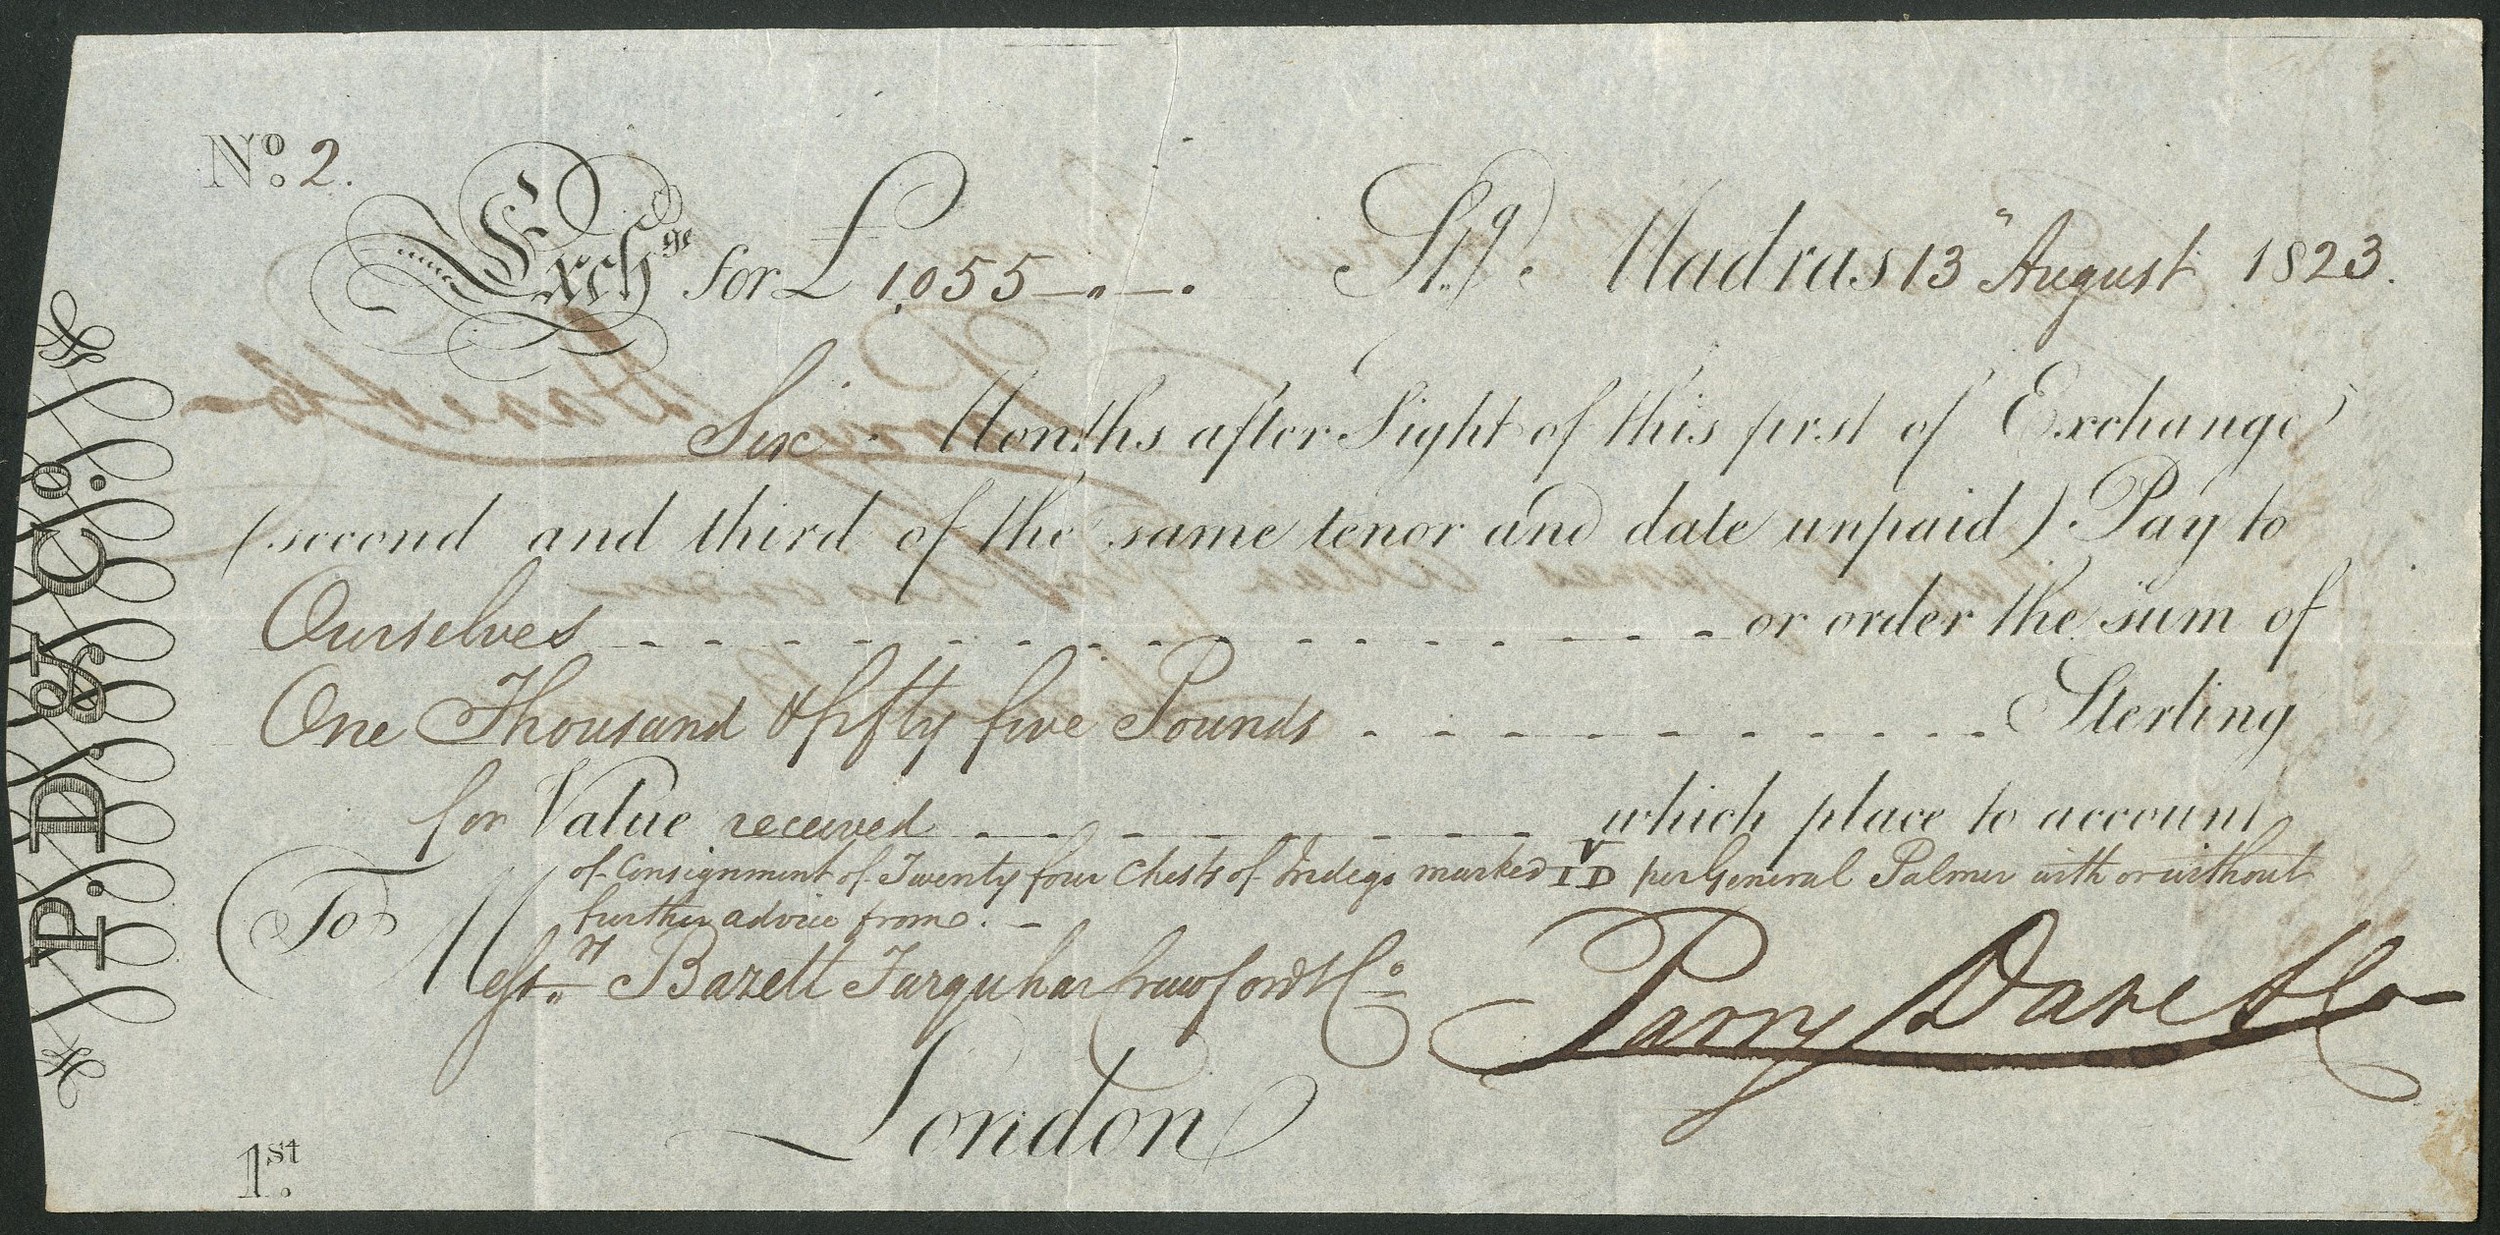 No. 2.
Exchge for £ 1,055 —"—. Stg. Madras 13" August 1823.
Six Months after Sight of this first of Exchange
(second and third of the same tenor and date unpaid) Pay to
Ourselves - - - - - - - - - - - - - - - - or order the sum of
One Thousand & fifty five Pounds - - - - - - - - - Sterling
for Value received - - - - - - - - which place to account
of Consignment of Twenty four Chests of Indigo marked I V D per General Palmer with or without
further advice from. -
To Messrs. Bazett Farquhar Crawford & Co.
Parry Dare & Co
London
1st.
P. D. & Co.